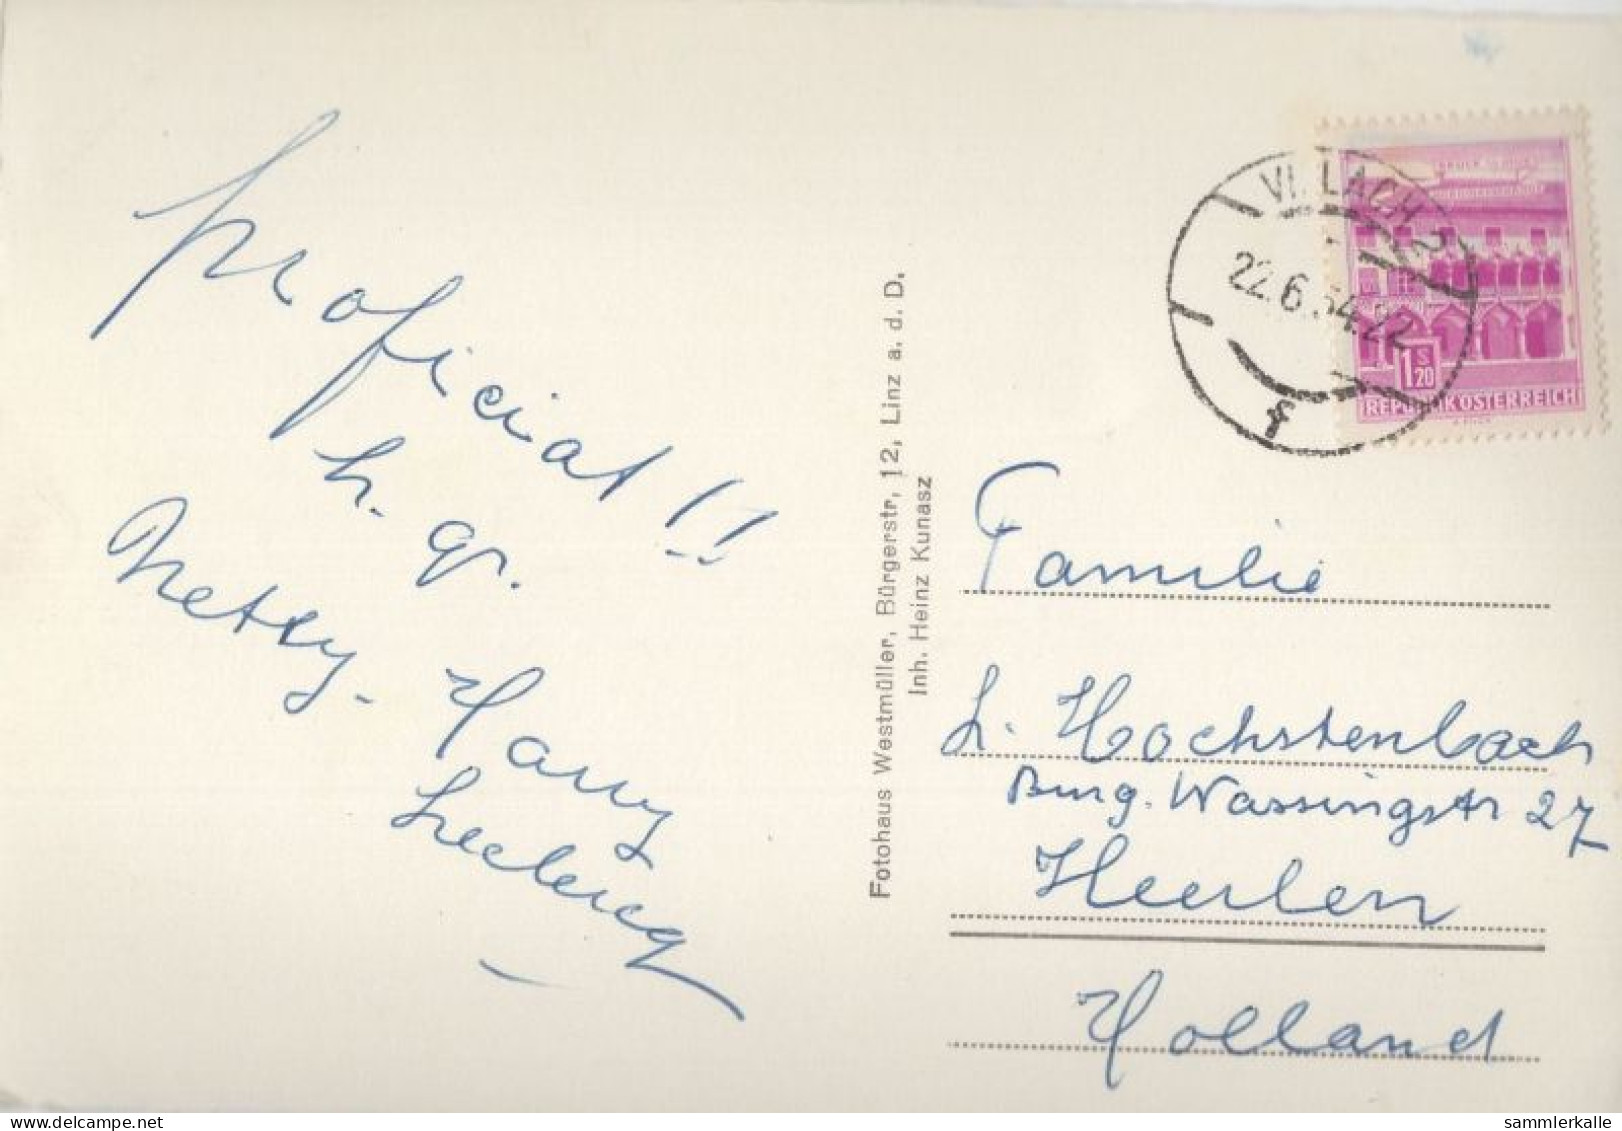 proficiat!!
h. gr.
Netty - Harry
Leclercq
Fotohaus Westmüller, Bürgerstr, 12, Linz a. d. D.
Inh. Heinz Kunasz
VILLACH 2
22.6.64.22
f
1 S 20
REPUBLIK ÖSTERREICH
Familie
L. Hochstenbach
Burg. Wassingstr 27
Heerlen
Holland
sammlerkalle